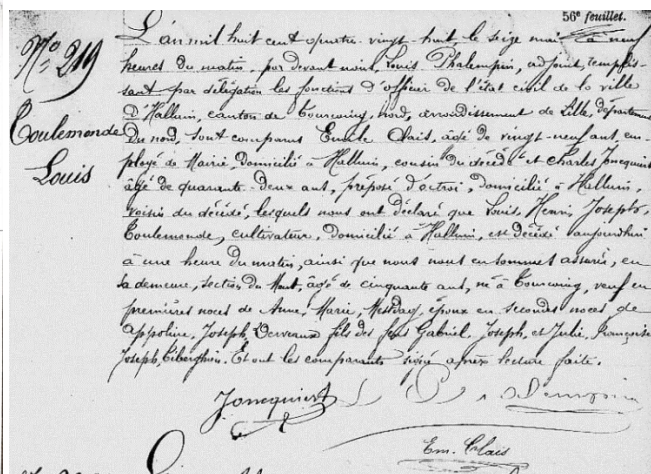 56e feuillet.
No 219
Toulemonde
Louis
L'an mil huit cent quatre-vingt-huit, le seize mai à neuf
heures du matin, par devant nous, Louis Phalempin, adjoint, remplis-
sant par délégation les fonctions d'officier de l'état civil de la ville
d'Halluin, canton de Tourcoing-Nord, arrondissement de Lille, département
du nord, sont comparus Emile Clais, âgé de vingt-neuf ans, em-
ployé de Mairie, domicilié à Halluin, cousin du décédé et Charles Joncquiert
âgé de quarante-deux ans, préposé d'octroi, domicilié à Halluin,
voisin du décédé, lesquels nous ont déclaré que Louis, Henri, Joseph,
Toulemonde, cultivateur, domicilié à Halluin, est décédé aujourd'hui
à une heure du matin, ainsi que nous nous en sommes assurés, en
sa demeure, section du Mont, âgé de cinquante ans, né à Tourcoing, veuf en
premières noces de Anne, Marie, Mestdag, époux en secondes noces de
Appoline, Joseph, Dervaux fils des feus Gabriel, Joseph, et Julie, Françoise
Joseph, Tiberghien. Et ont les comparants signé après lecture faite.
Joncquiert
Em. Clais